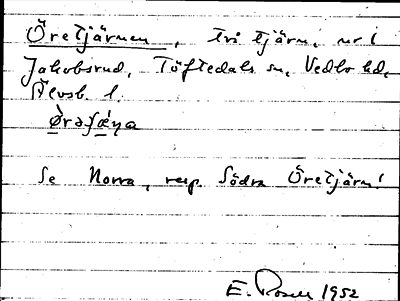 Öretjärnen, två tjärn, nr i
Jakobsrud, Töftedals sn, Vedbo hd,
Älvsb. l.
Se Norra, resp. Södra Öretjärn!
E. Rosell 1952